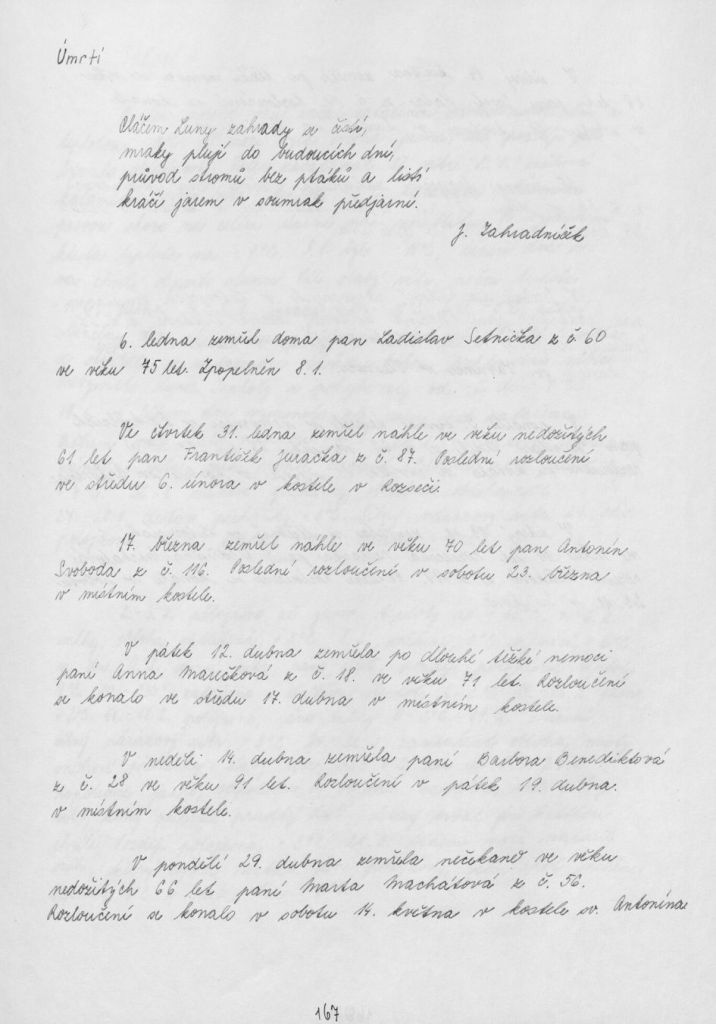 Úmrtí
Pláčem Luny zahrady a čistí,
mraky plují do budoucích dní,
průvod stromů bez ptáků a listí
kráčí jarem v soumrak předjarní.
J. Zahradníček
6. ledna zemřel doma pan Ladislav Setnička z č. 60
ve věku 75 let. Zpopelněn 8.1.
Ve čtvrtek 31. ledna zemřel náhle ve věku nedožitých
61 let pan František Juračka z č. 87. Poslední rozloučení
ve středu 6. února v kostele v Rozseči.
17. března zemřel náhle ve věku 70 let pan Antonín
Svoboda z č. 116. Poslední rozloučení v sobotu 23. března
v místním kostele.
V pátek 12. dubna zemřela po dlouhé těžké nemoci
paní Anna Marečková z č. 18. ve věku 71 let. Rozloučení
se konalo ve středu 17. dubna v místním kostele.
V neděli 14. dubna zemřela paní Barbora Benediktová
z č. 28 ve věku 91 let. Rozloučení v pátek 19. dubna.
v místním kostele.
V pondělí 29. dubna zemřela nečekaně ve věku
nedožitých 66 let paní Marta Machátová z č. 56.
Rozloučení se konalo v sobotu 14. května v kostele sv. Antonína
167